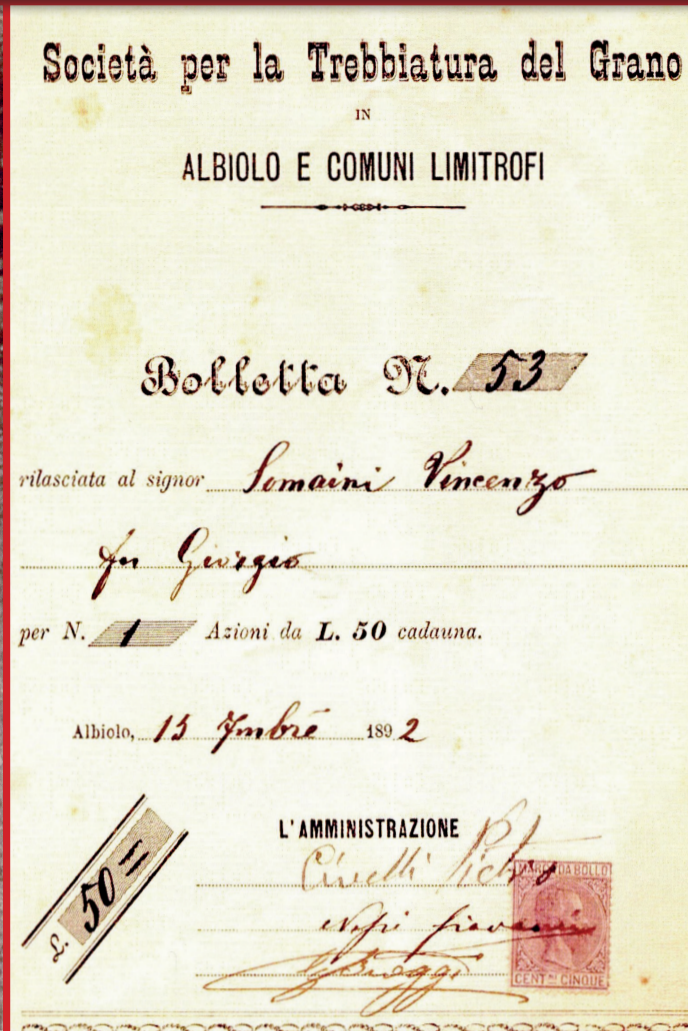 Società per la Trebbiatura del Grano
IN
ALBIOLO E COMUNI LIMITROFI
Bolletta N. 53
rilasciata al signor Somaini Vincenzo
fu Giorgio
per N. 1 Azioni da L. 50 cadauna.
Albiolo, 15 7mbre 1892
L'AMMINISTRAZIONE
Civelli Pietro
Giovanni
£. 50=
MARCA DA BOLLO
CENT.MI CINQUE